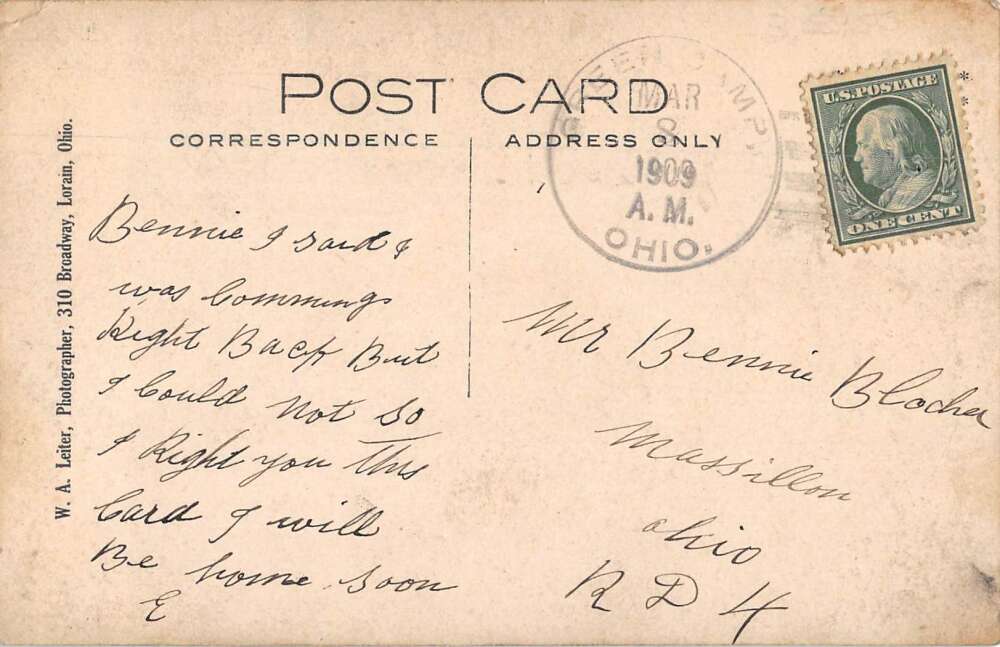 POST CARD
CORRESPONDENCE
ADDRESS ONLY
GREEN CAMP,
MAR
8
1909
A.M.
OHIO.
U.S. POSTAGE
ONE CENT
W. A. Leiter, Photographer, 310 Broadway, Lorain, Ohio.
Bennie I said I
was Commings
Right Back But
I Could Not So
I Right you This
Card I will
Be home soon
E
Mr Bennie Blocher
Massillon
ohio
R D 4